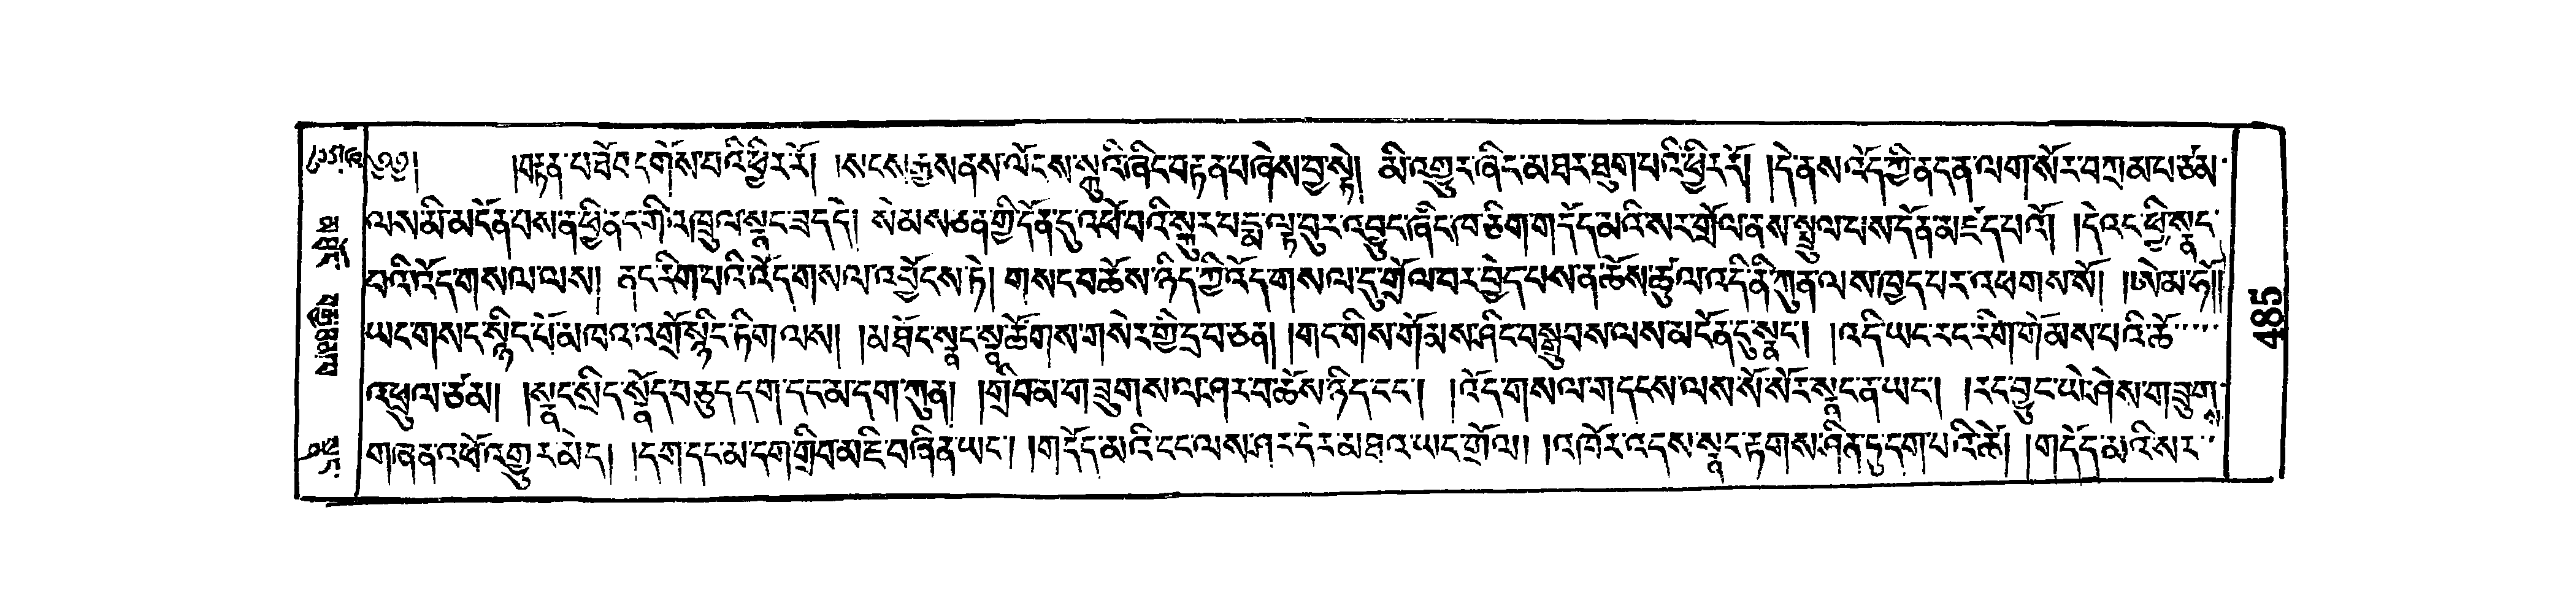 ༄༅། །བརྟན་པ་ཐོབ་དགོས་པའི་ཕྱིར་རོ། །སངས་རྒྱས་ནས་ལོངས་སྐུའི་ཞིང་བརྟན་པ་ཞེས་བྱ་སྟེ། མི་འགྱུར་ཞིང་མཐར་ཐུག་པའི་ཕྱིར་རོ། །དེ་ནས་འོད་ཀྱི་ནདན་ལག་སོར་བཀྲམ་པ་ཙམ་
ལས་མི་མངོན་པས་ན་ཕྱི་ནང་གི་འཁྲུལ་སྣང་ཟད་དེ། སེམས་ཅན་གྱི་དོན་དུ་འཕོ་བའི་སྐུར་པདྨ་ལྟ་བུར་འབྱུང་ཞིང་ཁ་ཅིག་གདོད་མའི་སར་གྲོལ་ནས་སྤྲུལ་པས་དོན་མཛད་པའོ། །དེ་འང་ཕྱི་སྣང་
བའི་འོད་གསལ་ལས། ནང་རིག་པའི་འོད་གསལ་འབྱོངས་ཏེ། གསང་བ་ཆོས་ཉིད་ཀྱི་འོད་གསལ་དུ་གྲོལ་བར་བྱེད་པས་ན་ཆོས་ཚུལ་འདི་ནི་ཀུན་ལས་ཁྱད་པར་འཕགས་སོ། །ཨེ་མ་ཧོ།
ཡང་གསང་སྙིང་པོ་མཁའ་འགྲོ་སྙིང་ཏིག་ལས། །མཐོང་སྣང་སྣ་ཚོགས་གསེར་གྱི་དྲ་བ་ཅན། །གང་གིས་གོམས་ཤིང་བསྒྲུབས་ལས་མངོན་དུ་སྣང་། །འདི་ཡང་རང་རིག་གོམས་པའི་ཆོ་་་་་
འཕྲུལ་ཙམ། །སྣང་སྲིད་སྣོད་བཅུད་དག་དང་མ་དག་ཀུན། །གྲིབ་མ་གཟུགས་ལ་ཤར་བ་ཆོས་ཉིད་དང་། །འོད་གསལ་གདངས་ལས་སོ་སོར་སྣང་ན་ཡང་། །རང་བྱུང་ཡེ་ཤེས་གཟུགས་
གཞན་འཕོ་འགྱུར་མེད། །དག་དང་མ་དག་གྲིབ་མ་ཇི་བཞིན་ཡང་། །གདོད་མའི་ངང་ལས་ཤར་དེར་མཐའ་ཡང་གྲོལ། །འཁོར་འདས་སྣང་རྟགས་ཤིན་ཏུ་དག་པའི་ཚེ། །གདོད་མའི་སར་